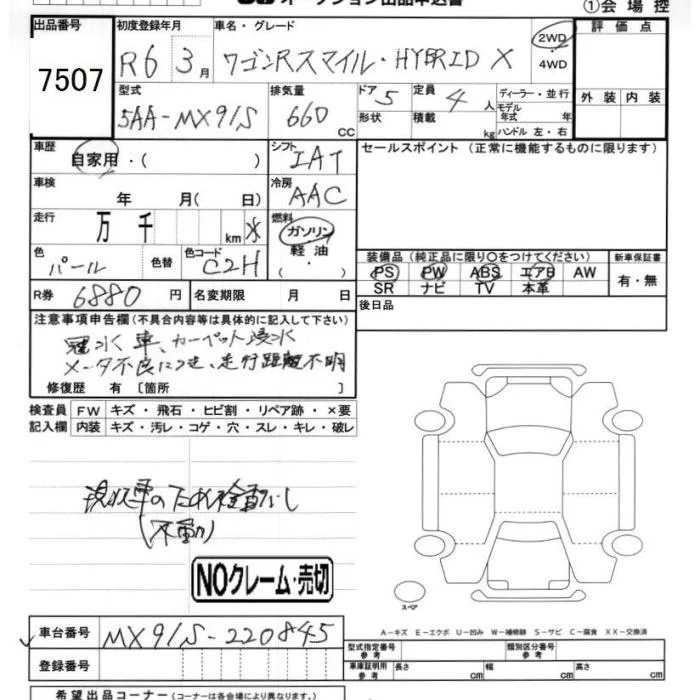 オークション出品申込書
①会場控
出品番号
7507
初度登録年月
R6 3月
車名・グレード
ワゴンRスマイル・HYBRID X
2WD
・4WD
評価点
外装 内装
型式
5AA-MX91S
排気量
660
CC
ドア 5
形状
定員 4人
積載 kg
ディーラー・並行
モデル年式 年
ハンドル 左・右
車歴
自家用・( )
シフト
IAT
セールスポイント(正常に機能するものに限ります)
車検
年 月( 日)
冷房
AAC
走行
万 千 km
燃料
ガソリン
軽油
( ・ )
色
パール
色替
色コード
C2H
装備品(純正品に限り○をつけてください)
新車保証書
PS PW ABS エアB AW
SR ナビ TV 本革
有・無
R券 6880円
名変期限 月 日
後日品
注意事項申告欄(不具合内容等は具体的に記入して下さい)
冠水車、カーペット浸水
メータ不良につき、走行距離不明
修復歴 有 〔箇所 〕
検査員 FW キズ・飛石・ヒビ割・リペア跡・×要
記入欄 内装 キズ・汚レ・コゲ・穴・スレ・キレ・破レ
現状車のため検査なし
(不動)
NOクレーム・売切
スペア
A-キズ E-エクボ U-凹み W-補修跡 S-サビ C-腐食 XX-交換済
車台番号 MX91S-220845
登録番号
型式指定番号 参考
類別区分番号 参考
車庫証明用 参考 長さ cm 幅 cm 高さ cm
希望出品コーナー(コーナーは各会場により異なります。)